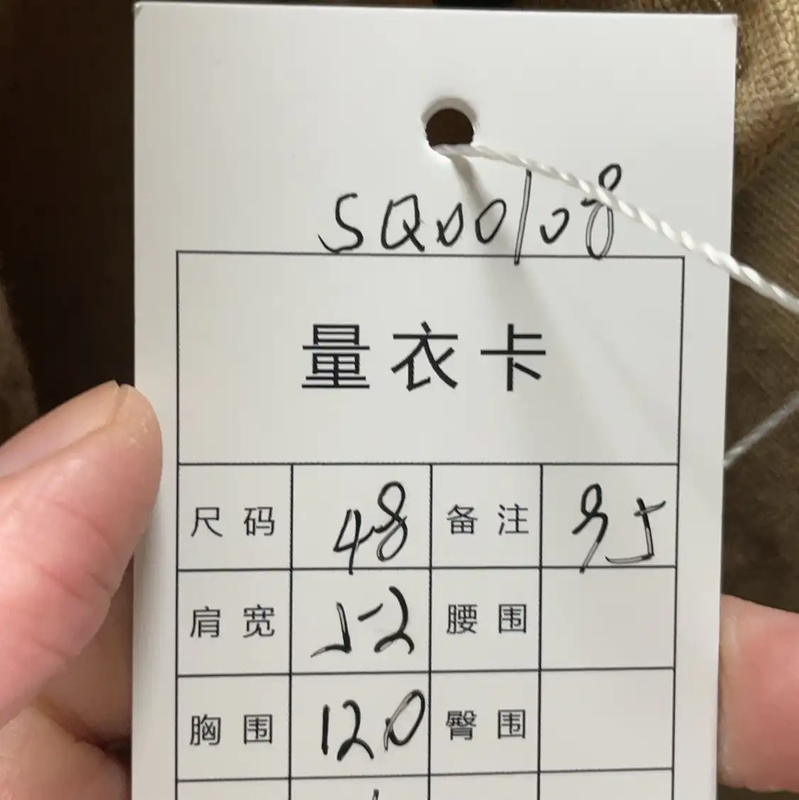 SQ00108
量衣卡
尺码 48 备注 95
肩宽 52 腰围
胸围 120 臀围